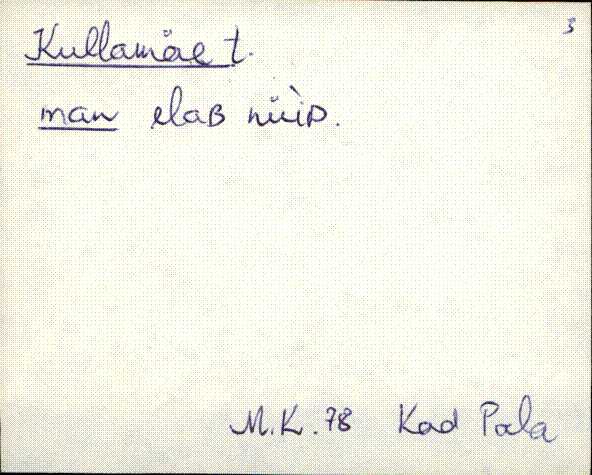 3
Kullamäe t.
man elaʙ nüìᴅ.
M.K. 78 Kod Pala